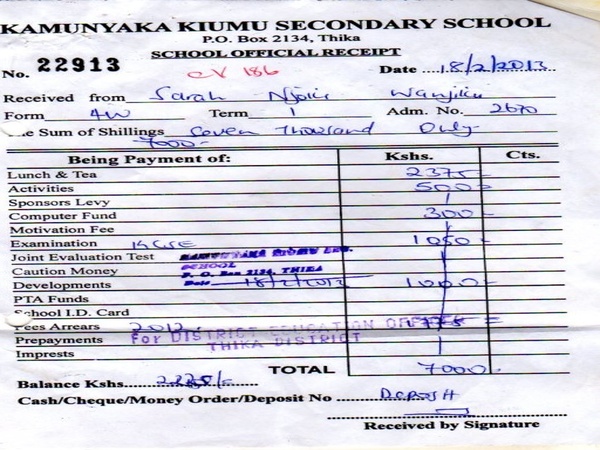 KAMUNYAKA KIUMU SECONDARY SCHOOL
P.O. Box 2134, Thika
SCHOOL OFFICIAL RECEIPT
No. 22913 CV 186 Date 18/2/2013
Received from Sarah Njoki Wanjiku
Form 4W Term 1 Adm. No. 2670
The Sum of Shillings Seven Thousand Only
7000-
Being Payment of: Kshs. Cts.
Lunch & Tea 2375
Activities 500
Sponsors Levy
Computer Fund 300
Motivation Fee
Examination KCSE 1050
Joint Evaluation Test KAMUNYAKA KIUMU SEC.
SCHOOL
Caution Money P. O. Box 2134, THIKA
Developments Date 18/2/2013 1000
PTA Funds
School I.D. Card
Fees Arrears 2012 1775
Prepayments For DISTRICT EDUCATION OFFICER
THIKA DISTRICT
Imprests
TOTAL 7000
Balance Kshs.
Cash/Cheque/Money Order/Deposit No
Received by Signature